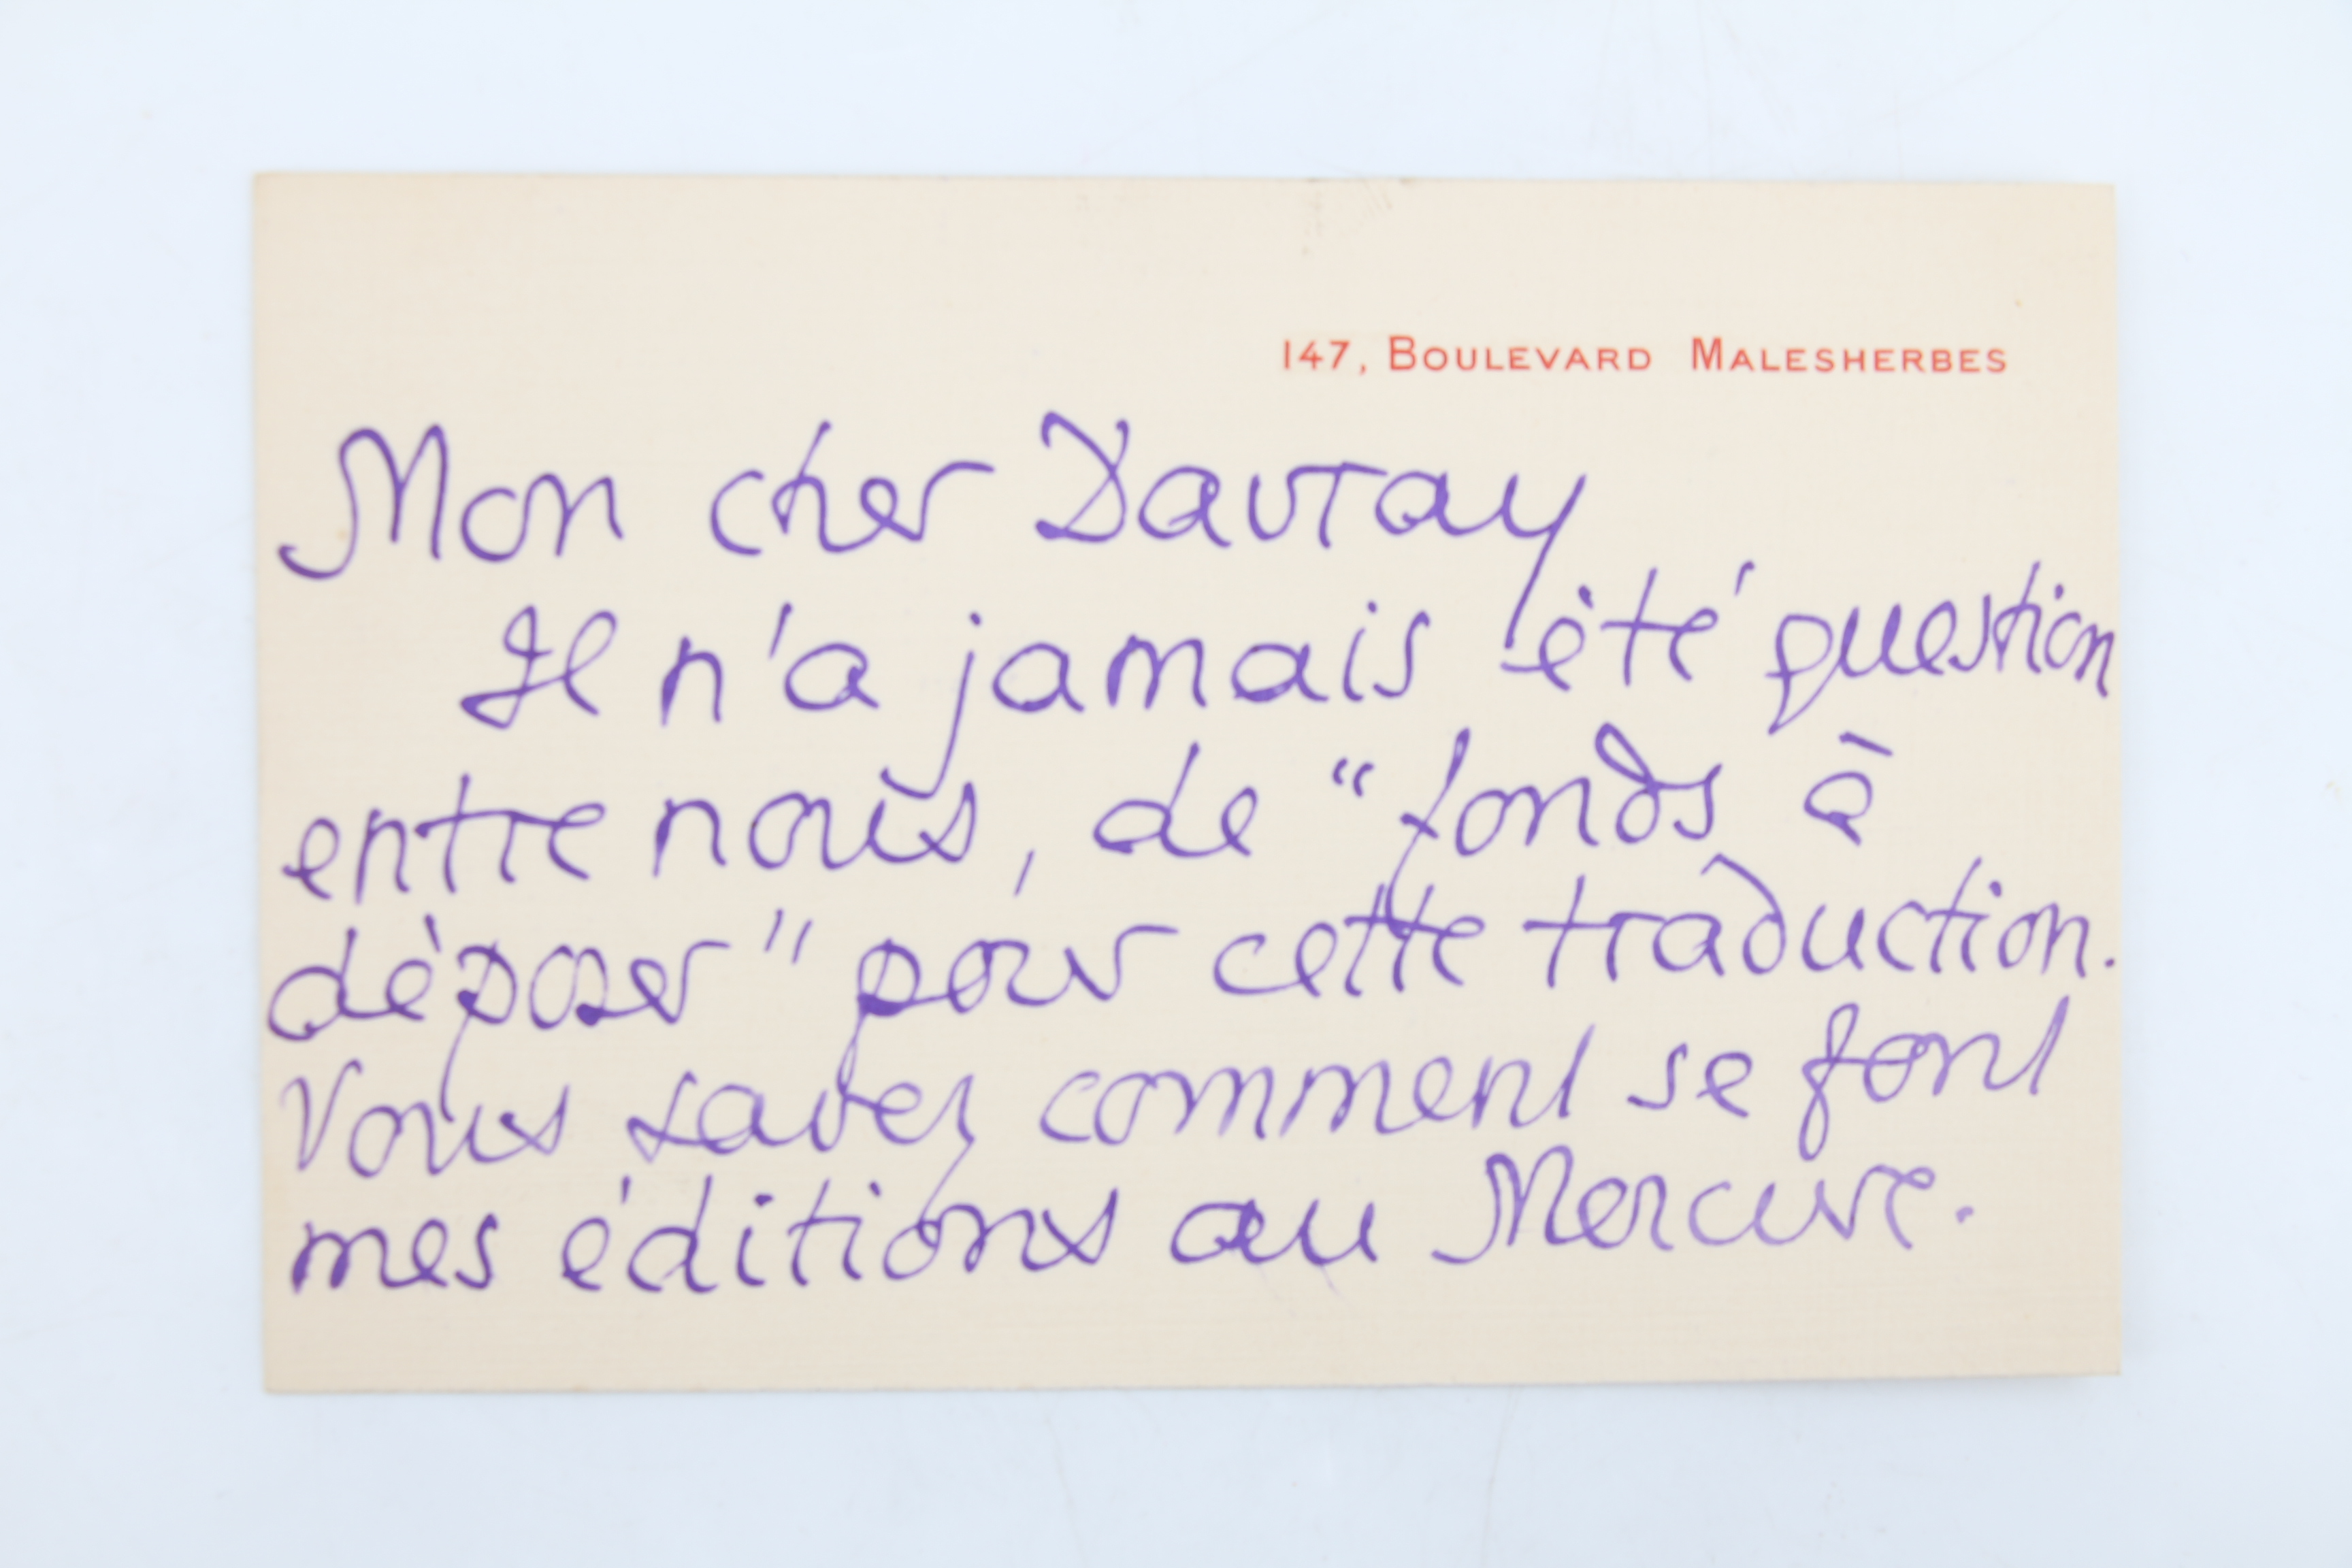 147, BOULEVARD MALESHERBES
Mon cher Davray
Il n'a jamais été question
entre nous, de “fonds à
déposer” pour cette traduction.
Vous savez comment se font
mes éditions au Mercure.